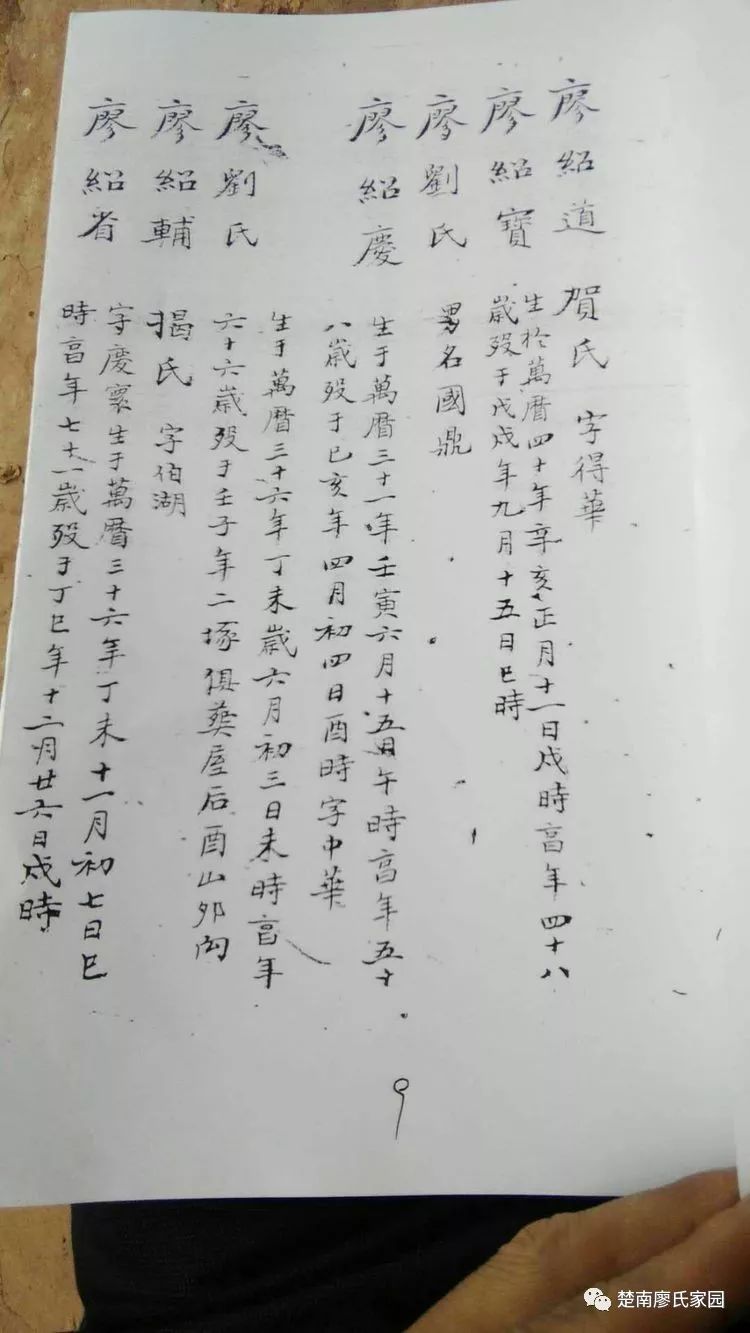 廖紹道 賀氏 字得華
廖紹寶 生於萬曆四十年辛亥正月十一日戌時高年四十八
歲殁于戊戌年九月十五日巳時
廖劉氏 男名國鼎
廖紹慶 生于萬曆三十一年壬寅六月十五日午時高年五十
八歲殁于己亥年四月初四日酉時字中華
廖劉氏 生于萬曆三十六年丁未歲六月初三日未時高年
六十六歲殁于壬子年二塚俱葬屋后酉山夘向
廖紹輔 揭氏 字伯湖
廖紹省 字慶寰生于萬曆三十六年丁未十一月初七日巳
時高年七十一歲殁于丁巳年十二月廿六日戌時
9
楚南廖氏家园